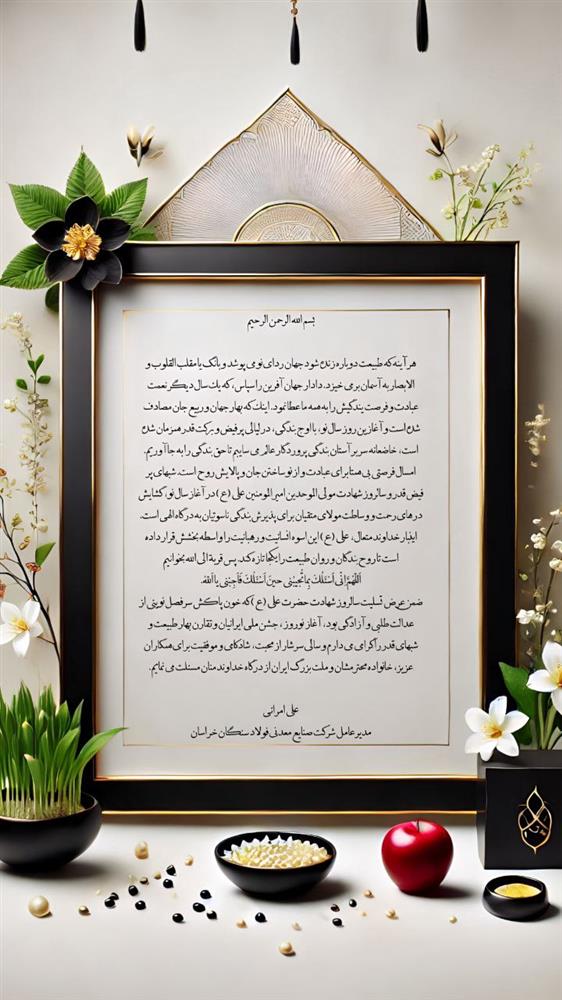 بسم الله الرحمن الرحیم
هر آینه که طبیعت دوباره زنده شود جهان ردای نو می پوشد و بانگ یا مقلب القلوب و
الابصار به آسمان برمی خیزد. دادار جهان آفرین را سپاس، که یک سال دیگر نعمت
عبادت و فرصت بندگیش را به همه ما عطا نمود. اینک که بهار جهان و ربیع جان مصادف
شده است و آغازین روز سال نو، با اوج بندگی، در لیالی پرفیض و برکت قدر همزمان شده
است، خاضعانه سر بر آستان بندگی پروردگار عالم می ساییم تا حق بندگی را به جا آوریم.
امسال فرصتی بی همتا برای عبادت و از نو ساختن جان و پالایش روح است. شبهای پر
فیض قدر و سالروز شهادت مولی الموحدین امیرالمومنین علی (ع) در آغاز سال نو، گشایش
درهای رحمت و وساطت مولای متقیان برای پذیرش بندگی ناسوتیان به درگاه الهی است.
ایفبار خداوند متعال، علی (ع) این اسوه انسانیت و رهبانیت را واسطه بخشش قرار داده
است تا روح بندگان و روان طبیعت را یکجا تازه کند. پس قربة الی الله بخوانیم
اَللّهُمَّ اِنّی اَسْئَلُکَ بِما تُجیبُنی حینَ اَسْئَلُکَ فَاَجِبْنی یا اَللهُ.
ضمن عرض تسلیت سالروز شهادت حضرت علی (ع) که خون پاکش سرفصل نوینی از
عدالت طلبی و آزادگی بود، آغاز نوروز، جشن ملی ایرانیان و تقارن بهار طبیعت و
شبهای قدر را گرامی می دارم و سالی سرشار از محبت، شادکامی و موفقیت برای همکاران
عزیز، خانواده محترمشان و ملت بزرگ ایران از درگاه خداوند منان مسئلت می نمایم.
علی امرانی
مدیرعامل شرکت صنایع معدنی فولاد سنگان خراسان